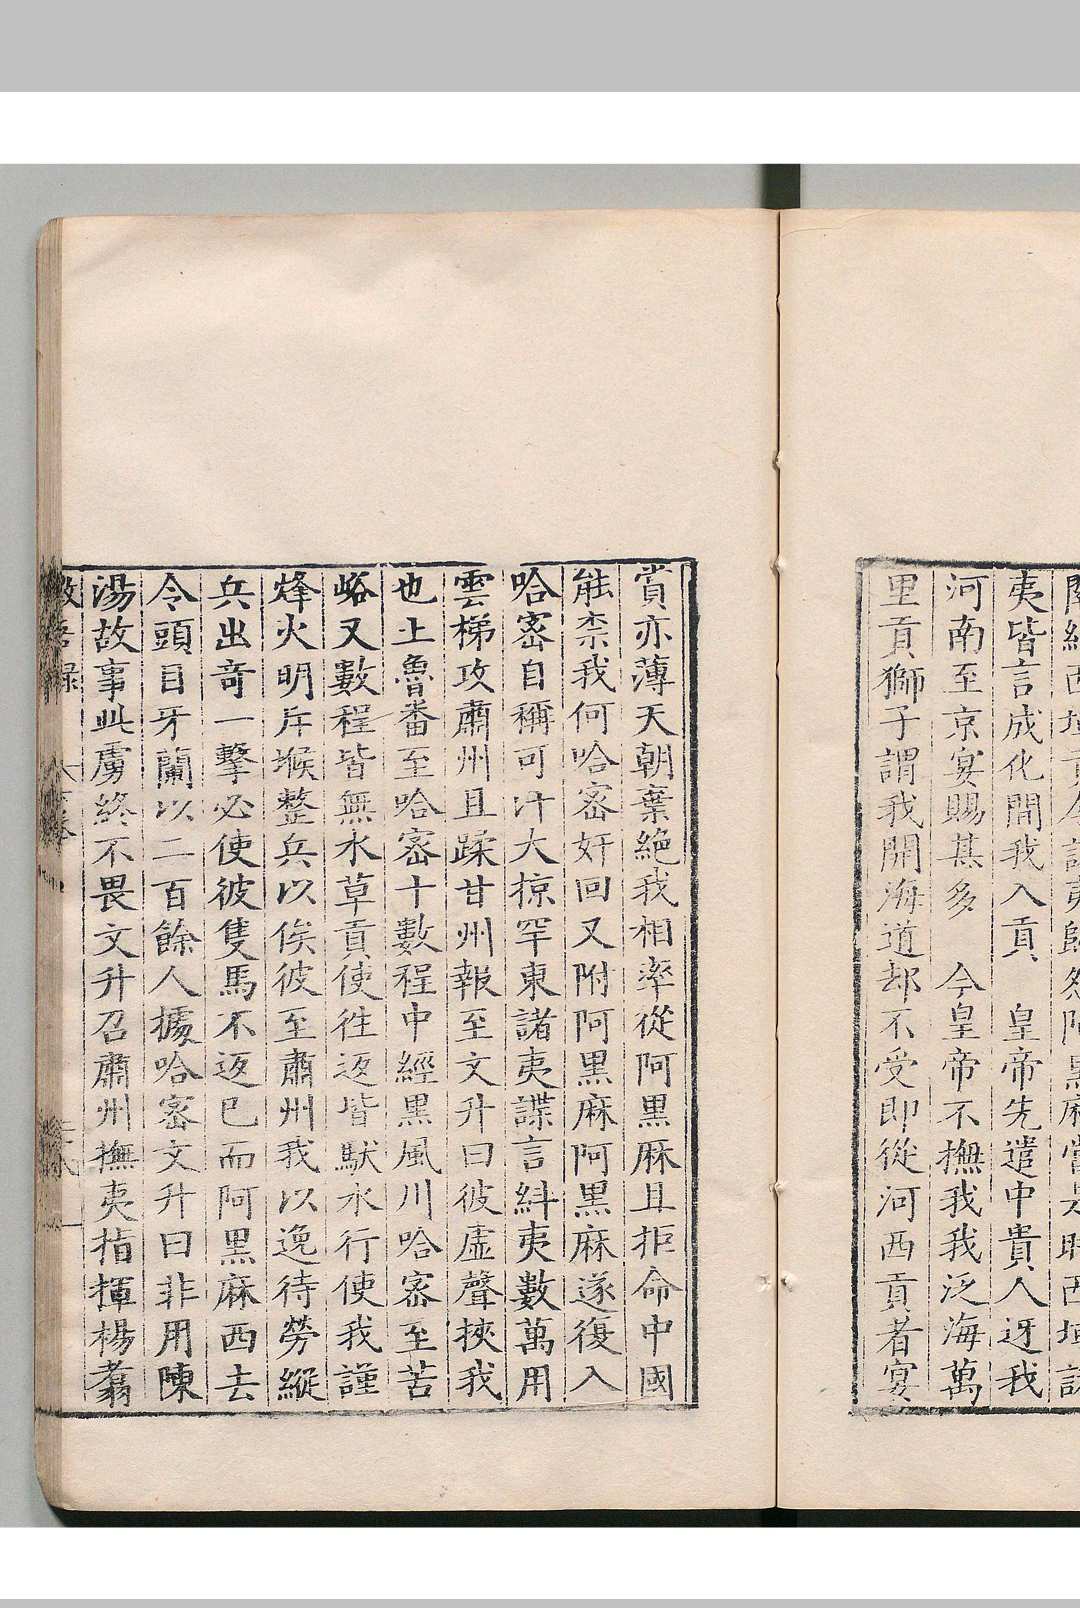 夷皆言成化間我入貢　皇帝先遣中貴人迓我
河南至京宴賜甚多　今皇帝不撫我我泛海萬
里貢獅子謂我開海道却不受即從河西貢者宴
賞亦薄天朝棄絕我相率從阿黑麻且拒命中國
能柰我何哈密奸回又附阿黑麻阿黑麻遂復入
哈密自稱可汗大掠罕東諸夷諜言糾夷數萬用
雲梯攻肅州且蹂甘州報至文升曰彼虛聲挾我
也土魯番至哈密十數程中經黑風川哈密至苦
峪又數程皆無水草貢使徃返皆馱水行使我謹
烽火明斥堠整兵以俟彼至肅州我以逸待勞縱
兵出竒一擊必使彼隻馬不返巳而阿黑麻西去
令頭目牙蘭以二百餘人據哈密文升曰非用陳
湯故事此虜終不畏文升召肅州撫夷指揮楊翥